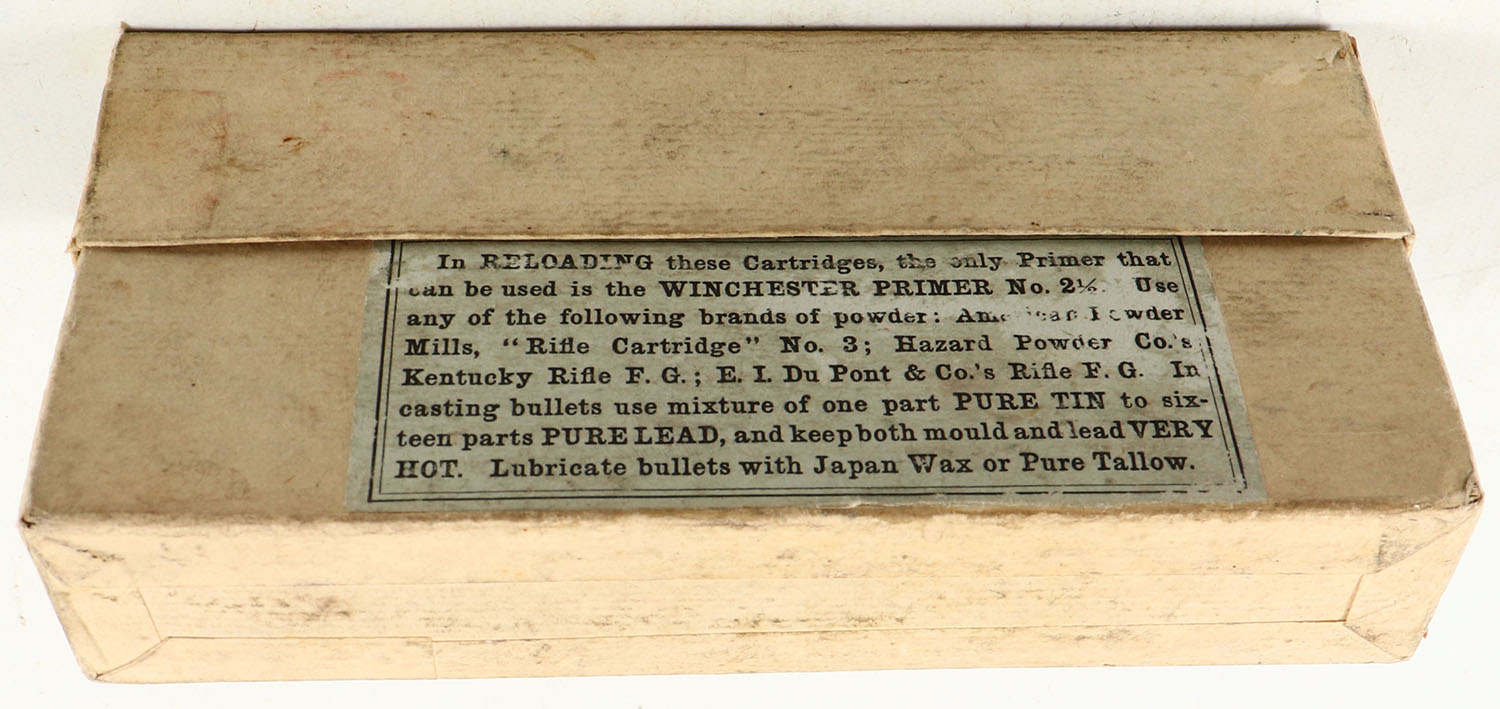 In RELOADING these Cartridges, the only Primer that
can be used is the WINCHESTER PRIMER No. 2½. Use
any of the following brands of powder: American Powder
Mills, "Rifle Cartridge" No. 3; Hazard Powder Co.'s
Kentucky Rifle F. G.; E. I. Du Pont & Co.'s Rifle F. G. In
casting bullets use mixture of one part PURE TIN to six-
teen parts PURE LEAD, and keep both mould and lead VERY
HOT. Lubricate bullets with Japan Wax or Pure Tallow.